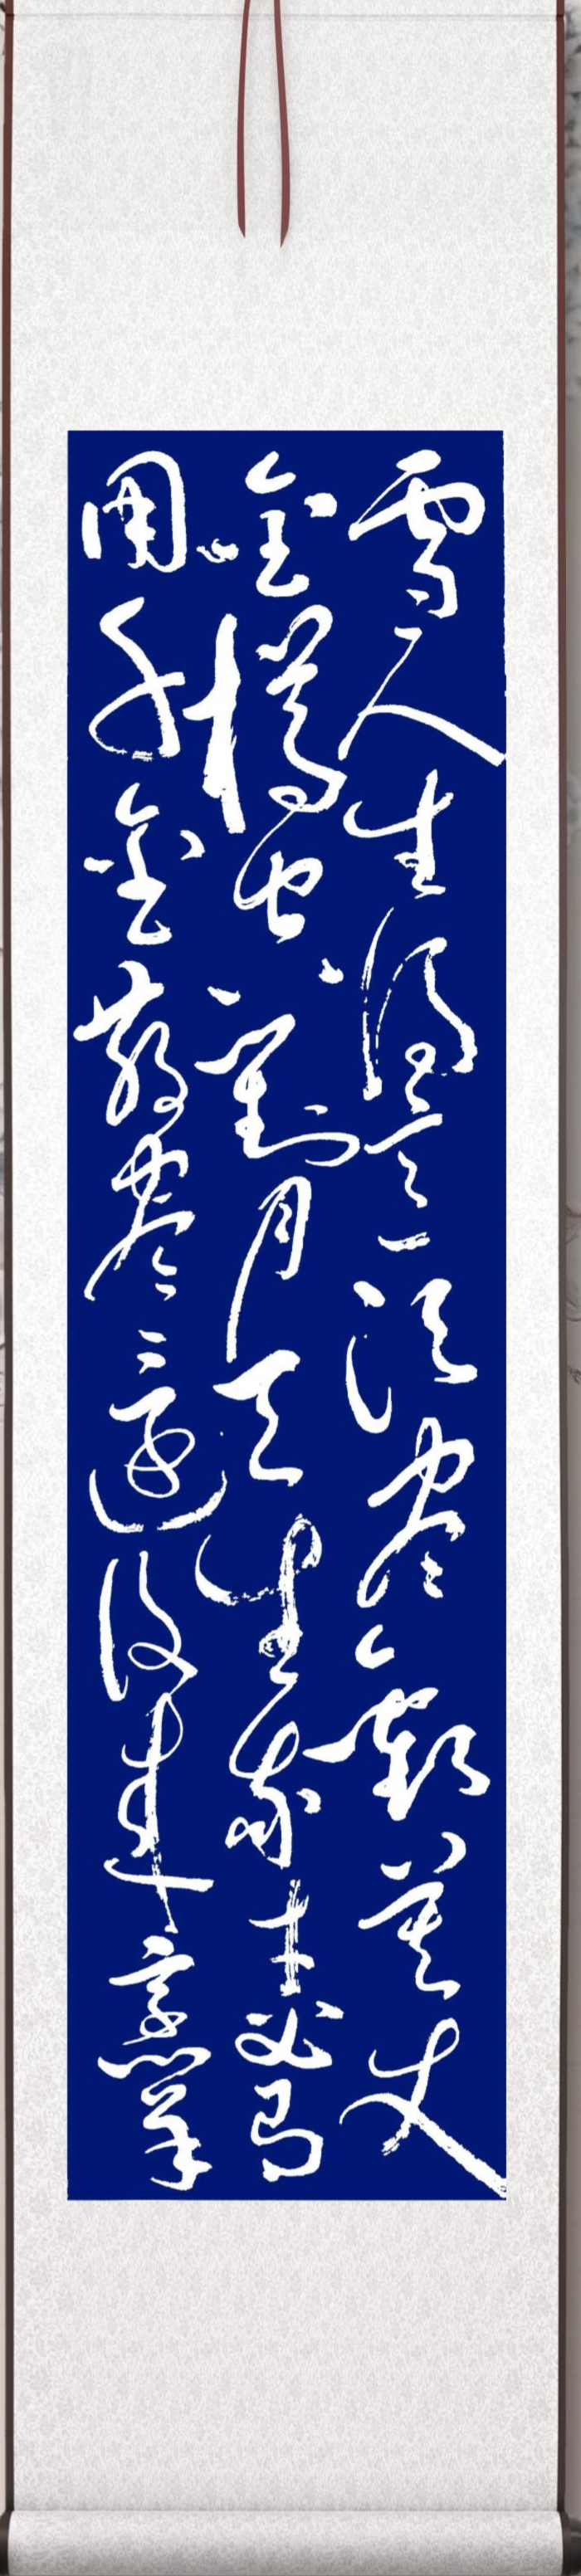 雪人生得意須盡歡莫使
金樽空對月天生我材必有
用千金散盡還復來烹羊